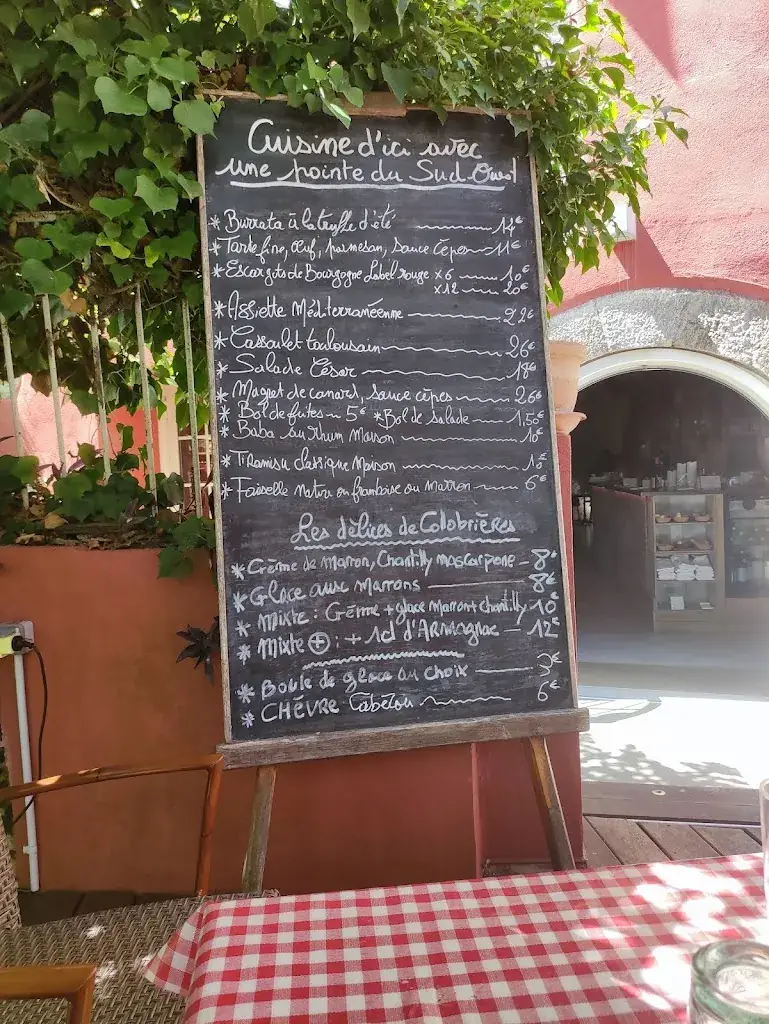 Cuisine d'ici avec
une pointe du Sud-Ouest
* Burrata à la truffe d'été 14€
* Tarte fine, œuf, parmesan, sauce cèpes 11€
* Escargots de Bourgogne Label rouge x6 10€
x12 20€
* Assiette Méditerranéenne 22€
* Cassoulet toulousain 26€
* Salade César 18€
* Magret de canard, sauce cèpes 26€
* Bol de frites 5€ * Bol de salade 1,50€
* Baba au rhum Maison 10€
* Tiramisu classique Maison 10€
* Faisselle nature ou framboise ou marron 6€
Les délices de Colobrières
* Crème de Marron, Chantilly mascarpone - 8€
* Glace aux marrons 8€
* Mixte : Crème + glace Marron + chantilly 10€
* Mixte + : + 1cl d'ARMagnac - 12€
* Boule de glace au choix 3€
* CHÈVRE Cabélou 6€